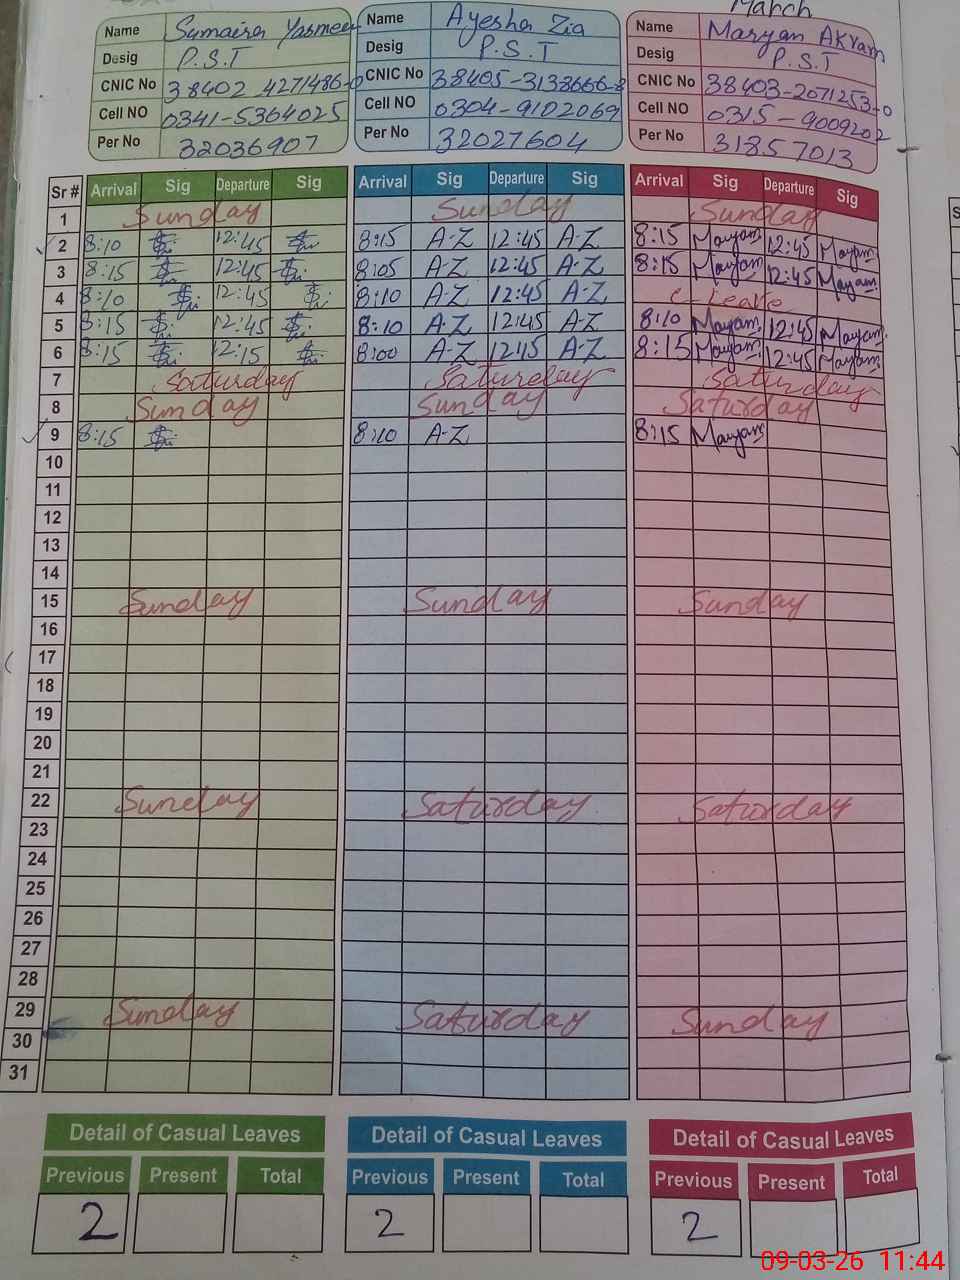 March
Name Sumaira Yasmeen
Desig P.S.T
CNIC No 38402 4271486-0
Cell NO 0341-5364025
Per No 32036907
Name Ayesha Zia
Desig P.S.T
CNIC No 38405-3138666-8
Cell NO 0304-9102069
Per No 32027604
Name Maryam Akram
Desig P.S.T
CNIC No 38403-2071253-0
Cell NO 0315-9009202
Per No 31857013
Sr # Arrival Sig Departure Sig Arrival Sig Departure Sig Arrival Sig Departure Sig
1 Sunday Sunday Sunday
2 8:10 12:45 8:15 A-Z 12:45 A-Z 8:15 Maryam 12:45 Maryam
3 8:15 12:45 8:05 A-Z 12:45 A-Z 8:15 Maryam 12:45 Maryam
4 8:10 12:45 8:10 A-Z 12:45 A-Z C-Leave
5 8:15 12:45 8:10 A-Z 12:45 A-Z 8:10 Maryam 12:45 Maryam
6 8:15 12:15 8:00 A-Z 12:15 A-Z 8:15 Maryam 12:45 Maryam
7 Saturday Saturday Saturday
8 Sunday Sunday Saturday
9 8:15 8:10 A-Z 8:15 Maryam
10
11
12
13
14
15 Sunday Sunday Sunday
16
17
18
19
20
21
22 Sunday Saturday Saturday
23
24
25
26
27
28
29 Sunday Saturday Sunday
30
31
Detail of Casual Leaves Detail of Casual Leaves Detail of Casual Leaves
Previous Present Total Previous Present Total Previous Present Total
2 2 2
09-03-26 11:44